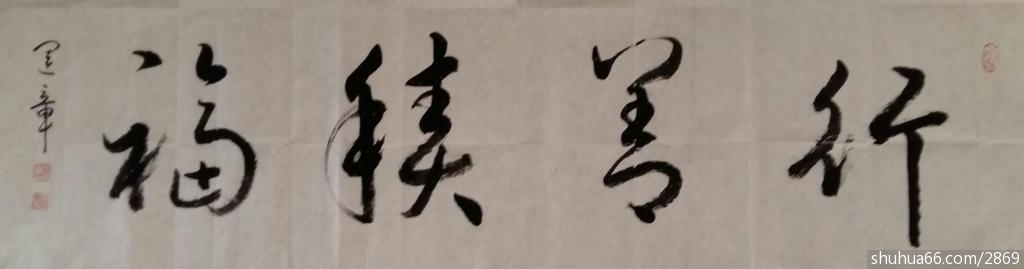 行善積福
shuhua66.com/2869